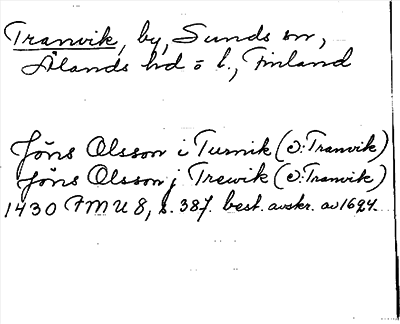 Tranvik, by, Sunds sn,
Ålands hd o l., Finland
Jöns Olsson i Turnik (ɔ: Tranvik)
Jöns Olsson j Trewik (ɔ: Tranvik)
1430 FMU 8, s. 387. best. avskr. av 1694.